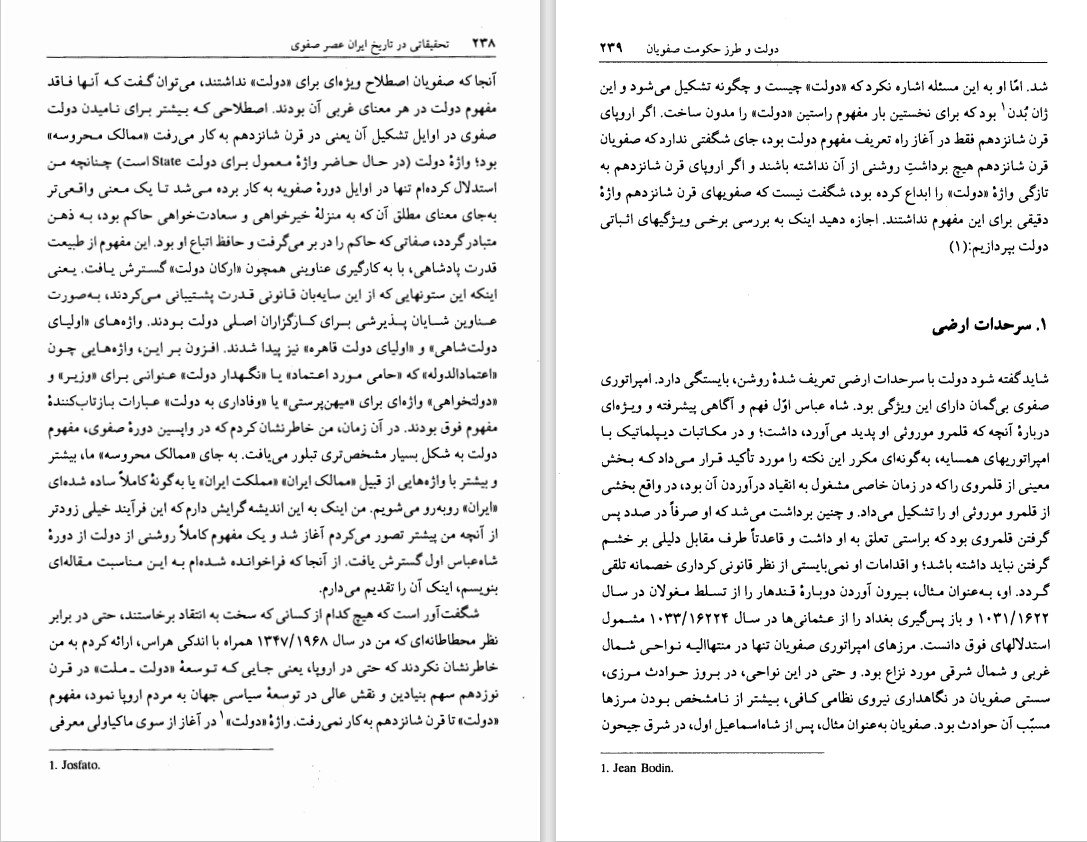 ۲۳۸ تحقیقاتی در تاریخ ایران عصر صفوی
آنجا که صفویان اصطلاح ویژه‌ای برای «دولت» نداشتند، می‌توان گفت که آنها فاقد
مفهوم دولت در هر معنای غربی آن بودند. اصطلاحی که بیشتر برای نامیدن دولت
صفوی در اوایل تشکیل آن یعنی در قرن شانزدهم به کار می‌رفت «ممالک محروسه»
بود؛ واژهٔ دولت (در حال حاضر واژهٔ معمول برای دولت State است) چنانچه من
استدلال کرده‌ام تنها در اوایل دورهٔ صفویه به کار برده می‌شد تا یک معنی واقعی‌تر
به‌جای معنای مطلق آن که به منزلهٔ خیرخواهی و سعادت‌خواهی حاکم بود، به ذهن
متبادر گردد، صفاتی که حاکم را در بر می‌گرفت و حافظ اتباع او بود. این مفهوم از طبیعت
قدرت پادشاهی، با به کارگیری عناوینی همچون «ارکان دولت» گسترش یافت. یعنی
اینکه این ستونهایی که از این سایه‌بان قانونی قدرت پشتیبانی می‌کردند، به‌صورت
عناوین شایان پذیرشی برای کارگزاران اصلی دولت بودند. واژه‌های «اولیای
دولت‌شاهی» و «اولیای دولت قاهره» نیز پیدا شدند. افزون بر این، واژه‌هایی چون
«اعتمادالدوله» که «حامی مورد اعتماد» یا «نگهدار دولت» عنوانی برای «وزیر» و
«دولتخواهی» واژه‌ای برای «میهن‌پرستی» یا «وفاداری به دولت» عبارات بازتاب‌کنندهٔ
مفهوم فوق بودند. در آن زمان، من خاطرنشان کردم که در واپسین دورهٔ صفوی، مفهوم
دولت به شکل بسیار مشخص‌تری تبلور می‌یافت. به جای «ممالک محروسه» ما، بیشتر
و بیشتر با واژه‌هایی از قبیل «ممالک ایران» «مملکت ایران» یا به‌گونهٔ کاملاً ساده شده‌ای
«ایران» روبه‌رو می‌شویم. من اینک به این اندیشه گرایش دارم که این فرآیند خیلی زودتر
از آنچه من پیشتر تصور می‌کردم آغاز شد و یک مفهوم کاملاً روشنی از دولت از دورهٔ
شاه‌عباس اول گسترش یافت. از آنجا که فراخوانده شده‌ام به این مناسبت مقاله‌ای
بنویسم، اینک آن را تقدیم می‌دارم.
شگفت‌آور است که هیچ کدام از کسانی که سخت به انتقاد برخاستند، حتی در برابر
نظر محطاطانه‌ای که من در سال ۱۳۴۷/۱۹۶۸ همراه با اندکی هراس، ارائه کردم به من
خاطرنشان نکردند که حتی در اروپا، یعنی جایی که توسعهٔ «دولت ـ ملت» در قرن
نوزدهم سهم بنیادین و نقش عالی در توسعهٔ سیاسی جهان به مردم اروپا نمود، مفهوم
«دولت» تا قرن شانزدهم به‌کار نمی‌رفت. واژهٔ «دولت»۱ در آغاز از سوی ماکیاولی معرفی
1. Josfato.
دولت و طرز حکومت صفویان ۲۳۹
شد. امّا او به این مسئله اشاره نکرد که «دولت» چیست و چگونه تشکیل می‌شود و این
ژان بُدن۱ بود که برای نخستین بار مفهوم راستین «دولت» را مدون ساخت. اگر اروپای
قرن شانزدهم فقط در آغاز راه تعریف مفهوم دولت بود، جای شگفتی ندارد که صفویان
قرن شانزدهم هیچ برداشتِ روشنی از آن نداشته باشند و اگر اروپای قرن شانزدهم به
تازگی واژهٔ «دولت» را ابداع کرده بود، شگفت نیست که صفویهای قرن شانزدهم واژهٔ
دقیقی برای این مفهوم نداشتند. اجازه دهید اینک به بررسی برخی ویژگیهای اثباتی
دولت بپردازیم:(۱)
۱. سرحدات ارضی
شاید گفته شود دولت با سرحدات ارضی تعریف شدهٔ روشن، بایستگی دارد. امپراتوری
صفوی بی‌گمان دارای این ویژگی بود. شاه عباس اوّل فهم و آگاهی پیشرفته و ویژه‌ای
دربارهٔ آنچه که قلمرو موروثی او پدید می‌آورد، داشت؛ و در مکاتبات دیپلماتیک با
امپراتوریهای همسایه، به‌گونه‌ای مکرر این نکته را مورد تأکید قرار می‌داد که بخش
معینی از قلمروی را که در زمان خاصی مشغول به انقیاد درآوردن آن بود، در واقع بخشی
از قلمرو موروثی او را تشکیل می‌داد. و چنین برداشت می‌شد که او صرفاً در صدد پس
گرفتن قلمروی بود که براستی تعلق به او داشت و قاعدتاً طرف مقابل دلیلی بر خشم
گرفتن نباید داشته باشد؛ و اقدامات او نمی‌بایستی از نظر قانونی کرداری خصمانه تلقی
گردد. او، به‌عنوان مثال، بیرون آوردن دوبارهٔ قندهار را از تسلط مغولان در سال
۱۰۳۱/۱۶۲۲ و باز پس‌گیری بغداد را از عثمانی‌ها در سال ۱۰۳۳/۱۶۲۲۴ مشمول
استدلالهای فوق دانست. مرزهای امپراتوری صفویان تنها در منتهاالیه نواحی شمال
غربی و شمال شرقی مورد نزاع بود. و حتی در این نواحی، در بروز حوادث مرزی،
سستی صفویان در نگاهداری نیروی نظامی کافی، بیشتر از نامشخص بودن مرزها
مسبّب آن حوادث بود. صفویان به‌عنوان مثال، پس از شاه‌اسماعیل اول، در شرق جیحون
1. Jean Bodin.